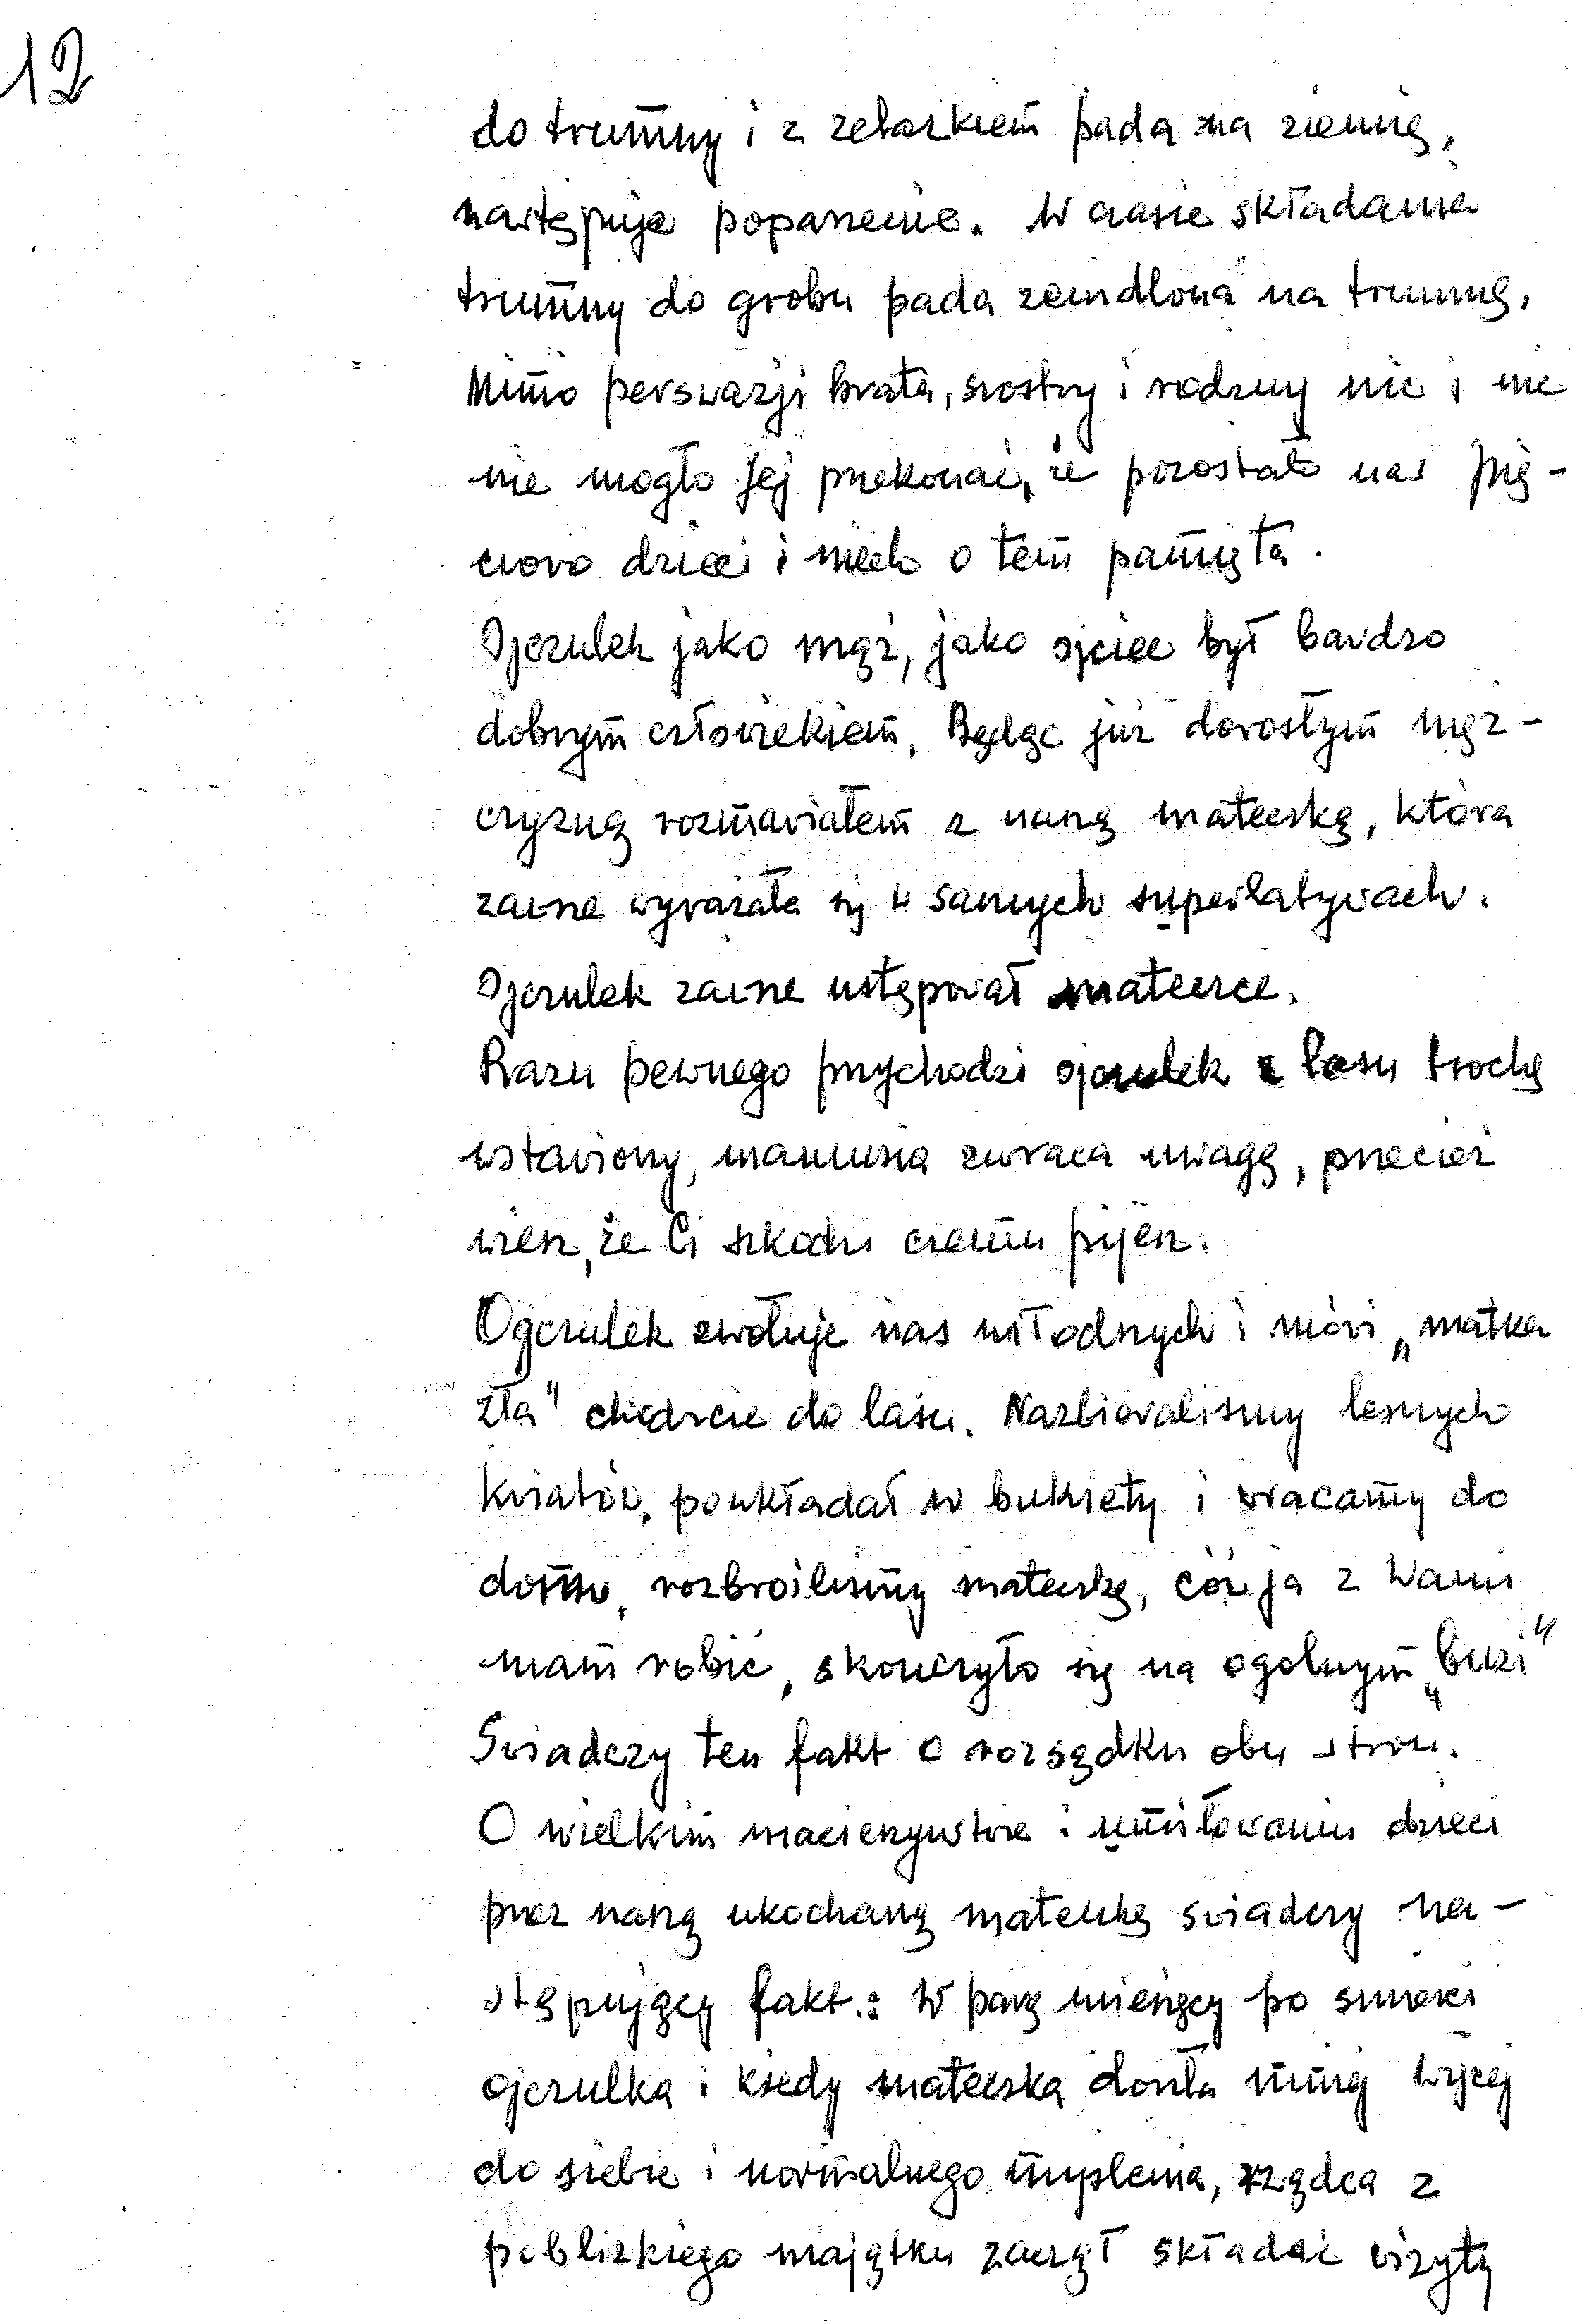 12
do trumny i z żelazkiem pada na ziemię,
następuje poparzenie. W czasie składania
trumny do grobu pada zemdlona na trumnę,
Mimo perswazji brata, siostry i rodziny nic i nic
nie mogło Jej przekonać, że pozostało nas pię-
cioro dzieci i niech o tem pamięta.
Ojczulek jako mąż, jako ojciec był bardzo
dobrym człowiekiem. Będąc już dorosłym męż-
czyzną rozmawiałem z naszą mateczką, która
zawsze wyrażała się w samych superlatywach.
Ojczulek zawsze ustępował mateczce.
Razu pewnego przychodzi ojczulek z lasu trochę
wstawiony, mamusia zwraca uwagę, przecież
wiesz, że Ci szkodzi czemu pijesz.
Ojczulek zwołuje nas młodszych i mówi „matka
zła" chodźcie do lasu. Nazbieraliśmy leśnych
kwiatów, poukładał w bukiety i wracamy do
domu, rozbroiliśmy mateczkę, cóż ja z Wami
mam robić, skończyło się na ogolnym „buzi"
Świadczy ten fakt o rozsądku obu stron.
O wielkim macierzyństwie i umiłowaniu dzieci
przez naszą ukochaną mateczkę świadczy na-
stępujący fakt.: W parę miesięcy po śmierci
ojczulka i kiedy mateczka doszła mniej więcej
do siebie i normalnego myślenia, rządca z
pobliskiego majątku zaczął składać wizyty